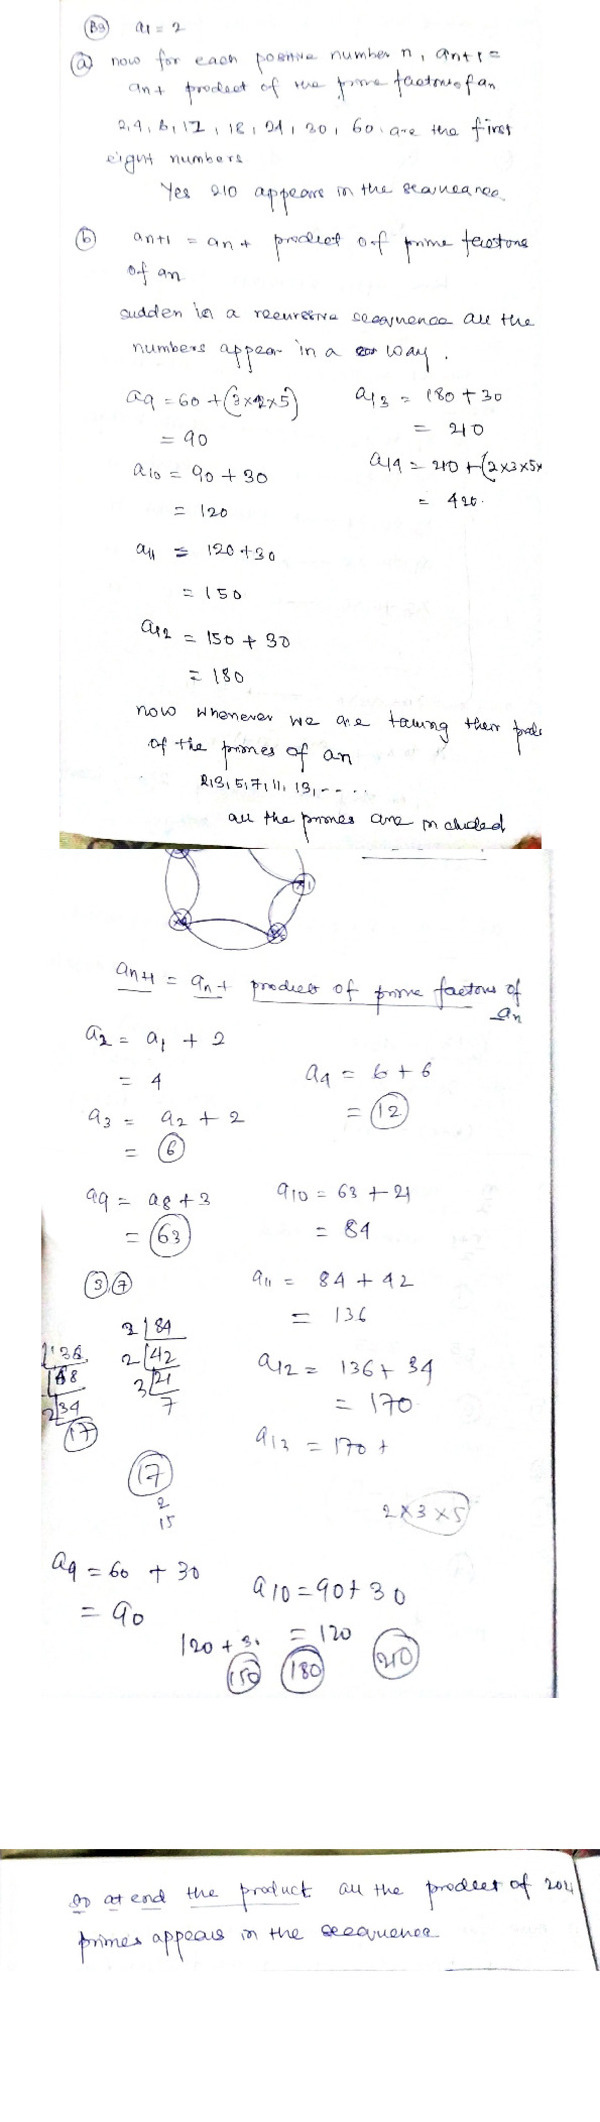 B3 a1 = 2
(a) now for each positive number n, an+1 =
an + product of the prime factors of an
2, 4, 6, 12, 18, 24, 30, 60 are the first
eight numbers
Yes 210 appears in the seaqueance
(b) an+1 = an + product of prime factors
of an
in a recursive seaquence all the
numbers appear in a way.
a9 = 60 + (3×2×5)
= 90
a10 = 90 + 30
= 120
a11 = 120 + 30
= 150
a12 = 150 + 30
= 180
a13 = 180 + 30
= 210
a14 = 210 + (2×3×5×
= 420.
now whenever we are taking their prod
of the primes of an
2, 3, 5, 7, 11, 13, - - - - -
all the primes are included
an+1 = an + product of prime factors of
an
a2 = a1 + 2
= 4
a3 = a2 + 2
= 6
a4 = 6 + 6
= 12
a9 = a8 + 3
= 63
3, 7
a10 = 63 + 21
= 84
a11 = 84 + 42
= 136
a12 = 136 + 34
= 170
a13 = 170 +
2 | 84
2 | 42
3 | 21
7
136
68
2 | 34
17
17
2
15
2 × 3 × 5
a9 = 60 + 30
= 90
a10 = 90 + 30
= 120
120 + 30
150 180 210
so at end the product all the product of 201
primes appears in the seequence